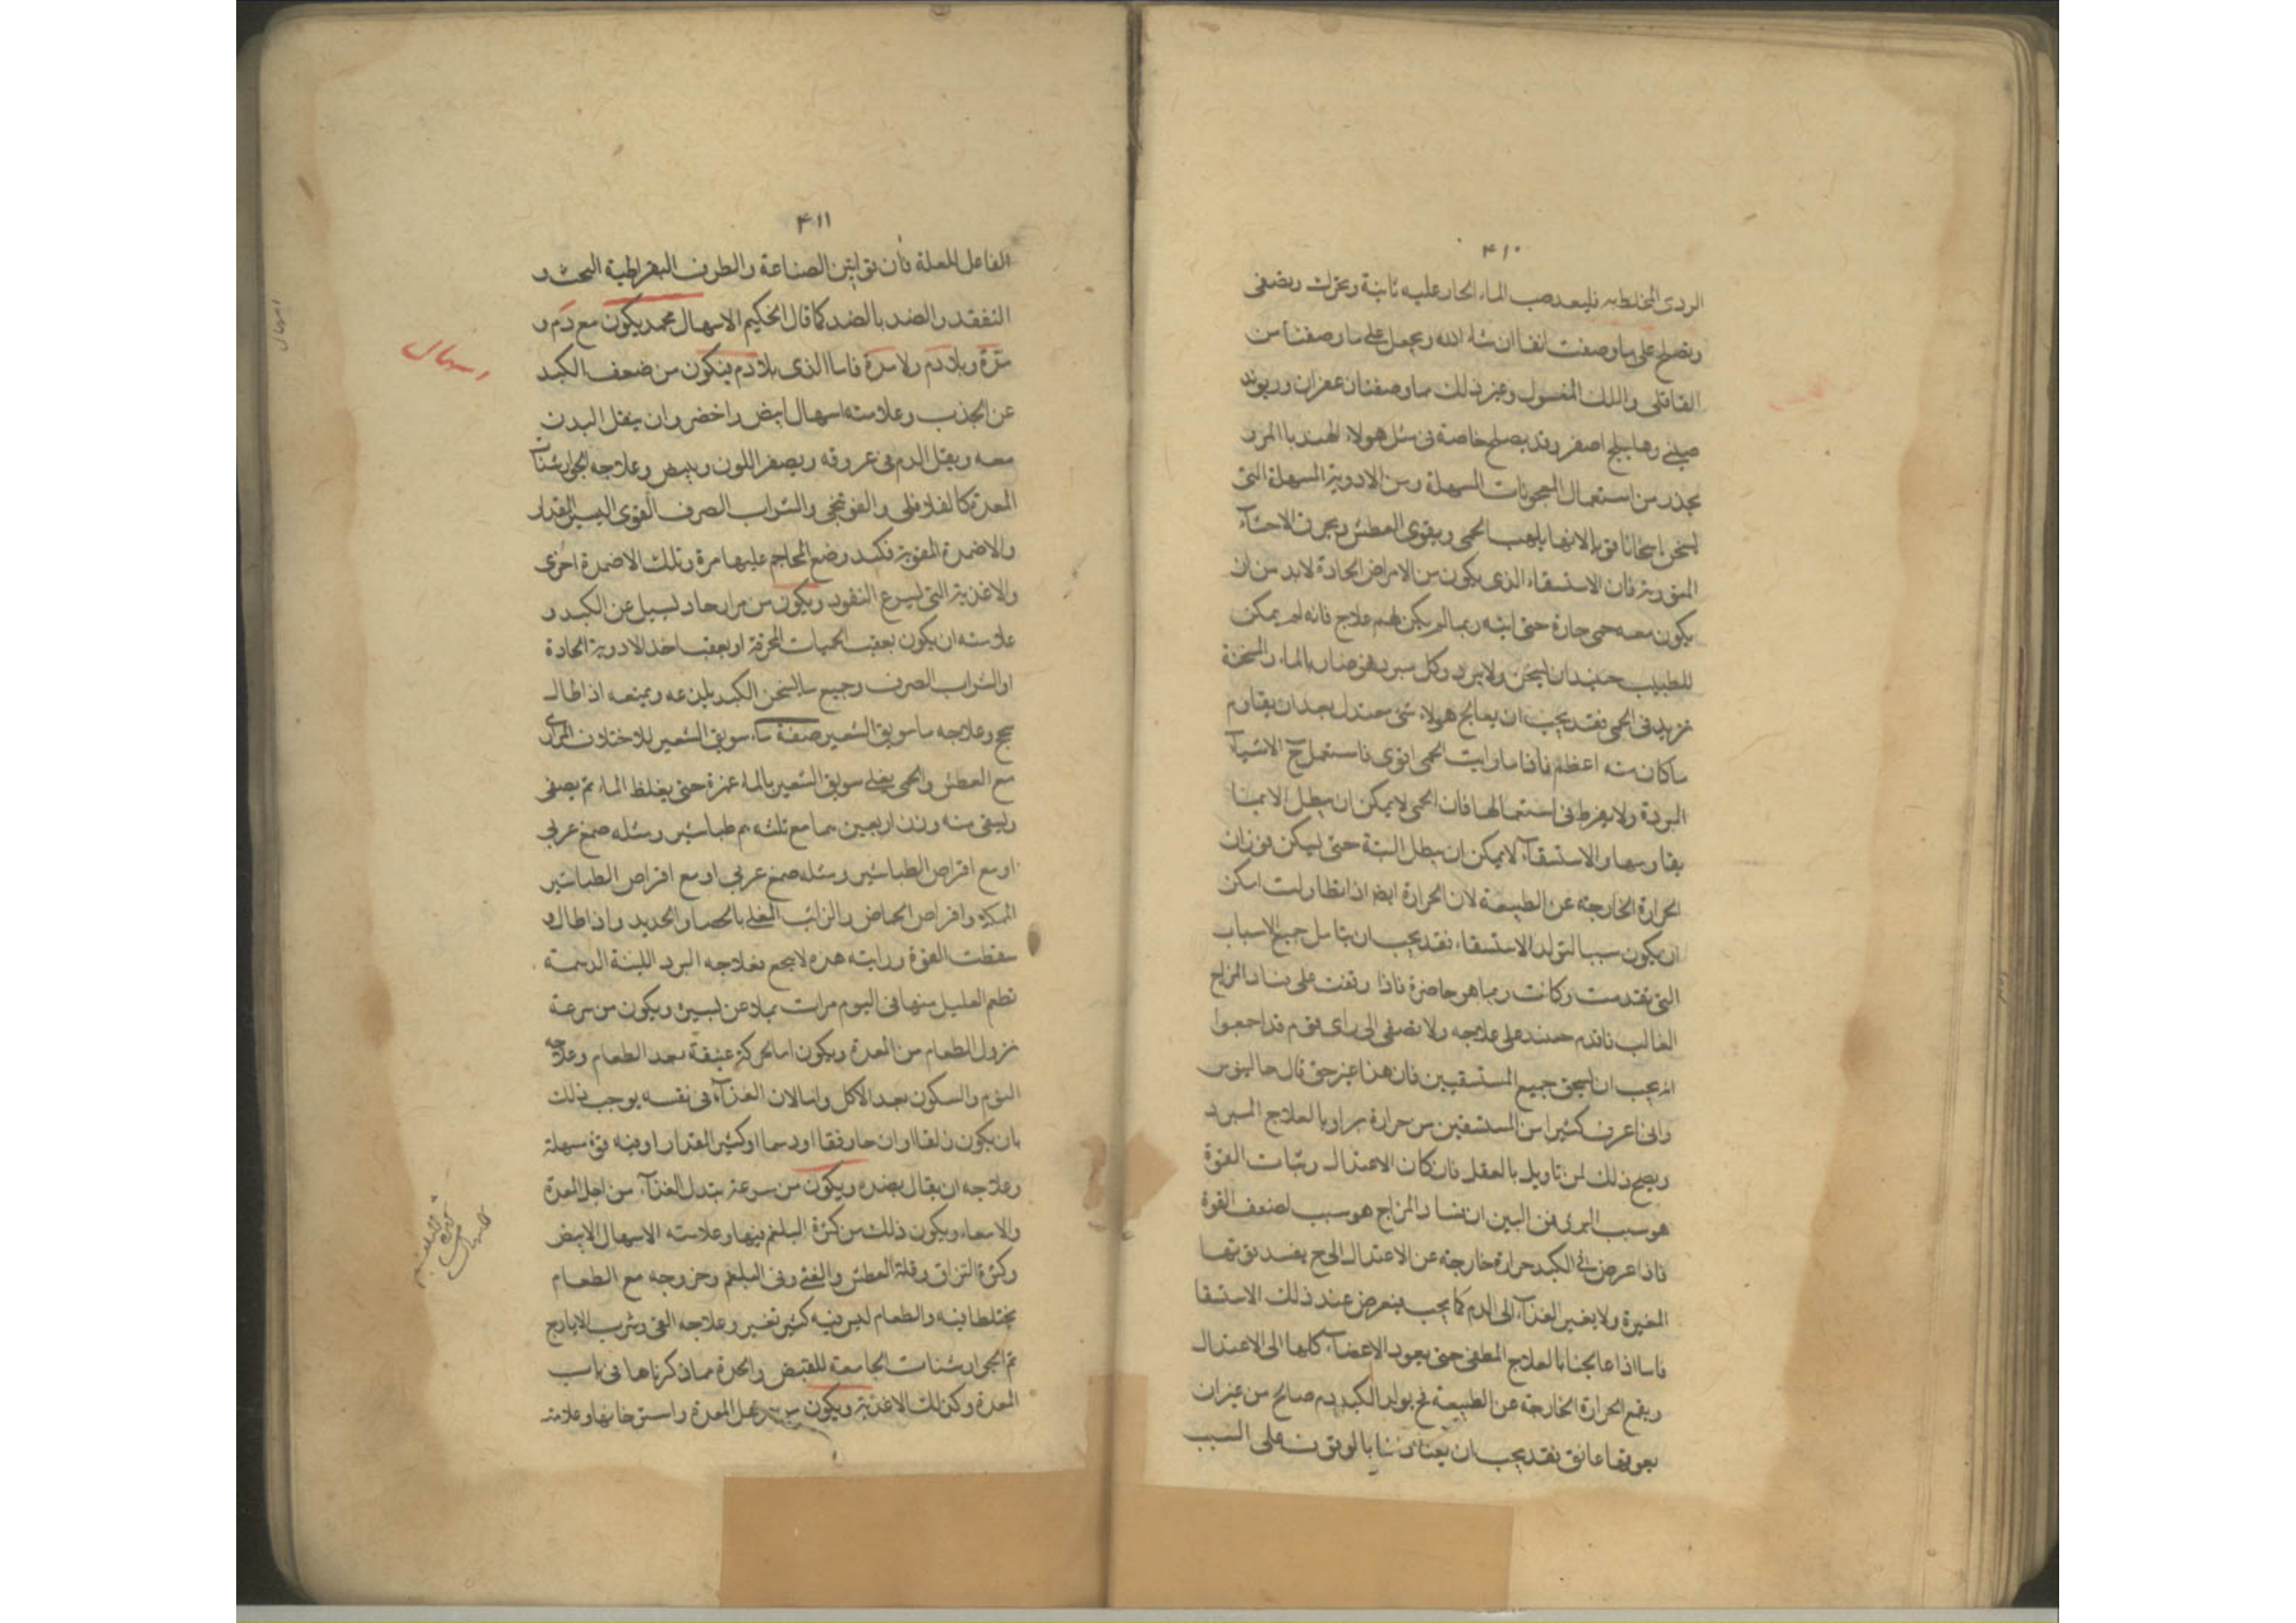 ۴۱۰
الردى المخلط به فليعد صب الماء الحار عليه ثانية ويحرك ويصفى
ويصلح على ما وصفت انفا ان شاء الله ويجعل على ما وصفنا من
القاقلى واللك المغسول وغير ذلك مما وصفنا زعفران وريوند
صينى وهليلج اصفر وقد يصلح خاصة فى مثل هولاء الهندبا المر و
يحذر من استعمال المعجونات المسهلة ومن الادوية المسهلة التى
يسخن اسخانا قويا لانها يلهب الحمى ويقوى العطش ويحرق الاحشآء
المتورمة فان الاستسقاء الذى يكون من الامراض الحادة لابد من ان
يكون معه حمى حارة حتى انه ربما لم يكن لهم علاج فانه لم يمكن
للطبيب حينئذ ان يسخن ولا يبرد وكل مبرد فهو ضار بالماء والمسخنة
تزيد فى الحمى فقد يجب ان يعالج هولاء بشئ معتدل بعد ان يقاوم
ما كان منه اعظم فاذا ما رايت الحمى اقوى فاستعمل ح الاشيآء
المبردة ولا يفرط فى استعمالها فان الحمى لا يمكن ان يبطل الا بما
يقاومها والاستسقآء لا يمكن ان يبطل البتة حتى يسكن فوران
الحرارة الخارجة عن الطبيعة لان الحرارة ايضا اذا تطاولت امكن
ان يكون سببا لتولد الاستسقاء فقد يجب ان يتامل جميع الاسباب
التى تقدمت وكانت وما هو حاضرة فاذا وقفت على فساد المزاج
الغالب فاقدم حينئذ على علاجه ولا تصغى الى راى قوم قد اجمعوا
انه يجب ان يسخن جميع المستسقيين فان هذا غير حق قال جالينوس
وانى اعرف كثيرا من المستسقين من حرارة براوا بالعلاج المبرد
ويصح ذلك لمن تاوله بالعقل فان كان الاعتدال وثبات القوة
هو سبب البرء فمن البين ان فساد المزاج هو سبب لضعف القوة
فاذا عرض فى الكبد حرارة خارجة عن الاعتدال الى ح يفسد قوتها
المغيرة ولا يغير الغذآء الى الدم كما يجب فيعرض عند ذلك الاستسقا
فاما اذا عالجنا بالعلاج المطفى حتى يعود الاعضآء كلها الى الاعتدال
ويقمع الحرارة الخارجة عن الطبيعة فح يولد الكبد دم صالح من غير ان
يعوقها عائق فقد يجب ان يعنا بالوقوف على السبب
۴۱۱
الفاعل للعلة فان قوانين الصناعة والطرق البقراطية البحث و
التفقد والضد بالضد كما قال الحكيم الاسهال محمد يكون مع دم و
مرة وبلا دم ولا مرة فاما الذى بلا دم فيكون من ضعف الكبد
عن الجذب وعلامته اسهال ابيض واخضر وان يقل البدن
معه ويقل الدم فى عروقه ويصفر اللون ويبيض وعلاجه الجوارشنات
المعدة كالفلافلى والفوتنجى والشراب الصرف القوى اليسير المقدار
والاضمدة المقوية فكبد وضع المحاجم عليها مرة وتلك الاضمدة اخرى
والاغذية التى يسرع النفوذ ويكون من مرار حاد يسيل عن الكبد و
علامته ان يكون بعقب الحميات المحرقة او بعقب اخذ الادوية الحادة
او الشراب الصرف وجميع ما يسخن الكبد يلذعه ويمنعه اذا طال
سحج وعلاجه ما سويق الشعير صفة ماء سويق الشعير للاختلاف المرارى
مع العطش والحمى يغلى سويق الشعير بالماء غمرة حتى يغلظ الماء ثم يصفى
ويسقى منه وزن اربعين مما مع ثلثه م طباشير ومثله صمغ عربى
او مع اقراص الطباشير ومثله صمغ عربى او مع اقراص الطباشير
الممسكة واقراص الحماض والرائب المغلى بالحصا والحديد واذا طال و
سقطت القوة ورايته هده لا ينجع فعلاجه البرد اللينة الدسمة
تطعم العليل منها فى اليوم مرات ويكون من سرعة
نزول الطعام من المعدة ويكون اما لحركة عنيفة بعد الطعام وعلاجه
النوم والسكون بعد الاكل واما لان الغذآء فى نفسه يوجب ذلك
بان يكون زلقا او ان حارقا او دسما او كثير المقدار او فيه قوة مسهلة
وعلاجه ان يقال بضده ويكون من سرعة تبدل الغذآء من اجل المعدة
والامعاء ويكون ذلك من كثرة البلغم فيها وعلامته الاسهال الابيض
وكثرة البزاق وقلة العطش والغثى وقى البلغم وخروجه مع الطعام
مختلطا فيه والطعام ليس فيه كثير تغير وعلاجه القى وشرب الايارج
ثم الجوارشنات الجامعة للقبض والحدة مما ذكرناها فى باب
المعدة وكذلك الاغذية ويكون من ترهل المعدة واسترخائها وعلامته
اسهال